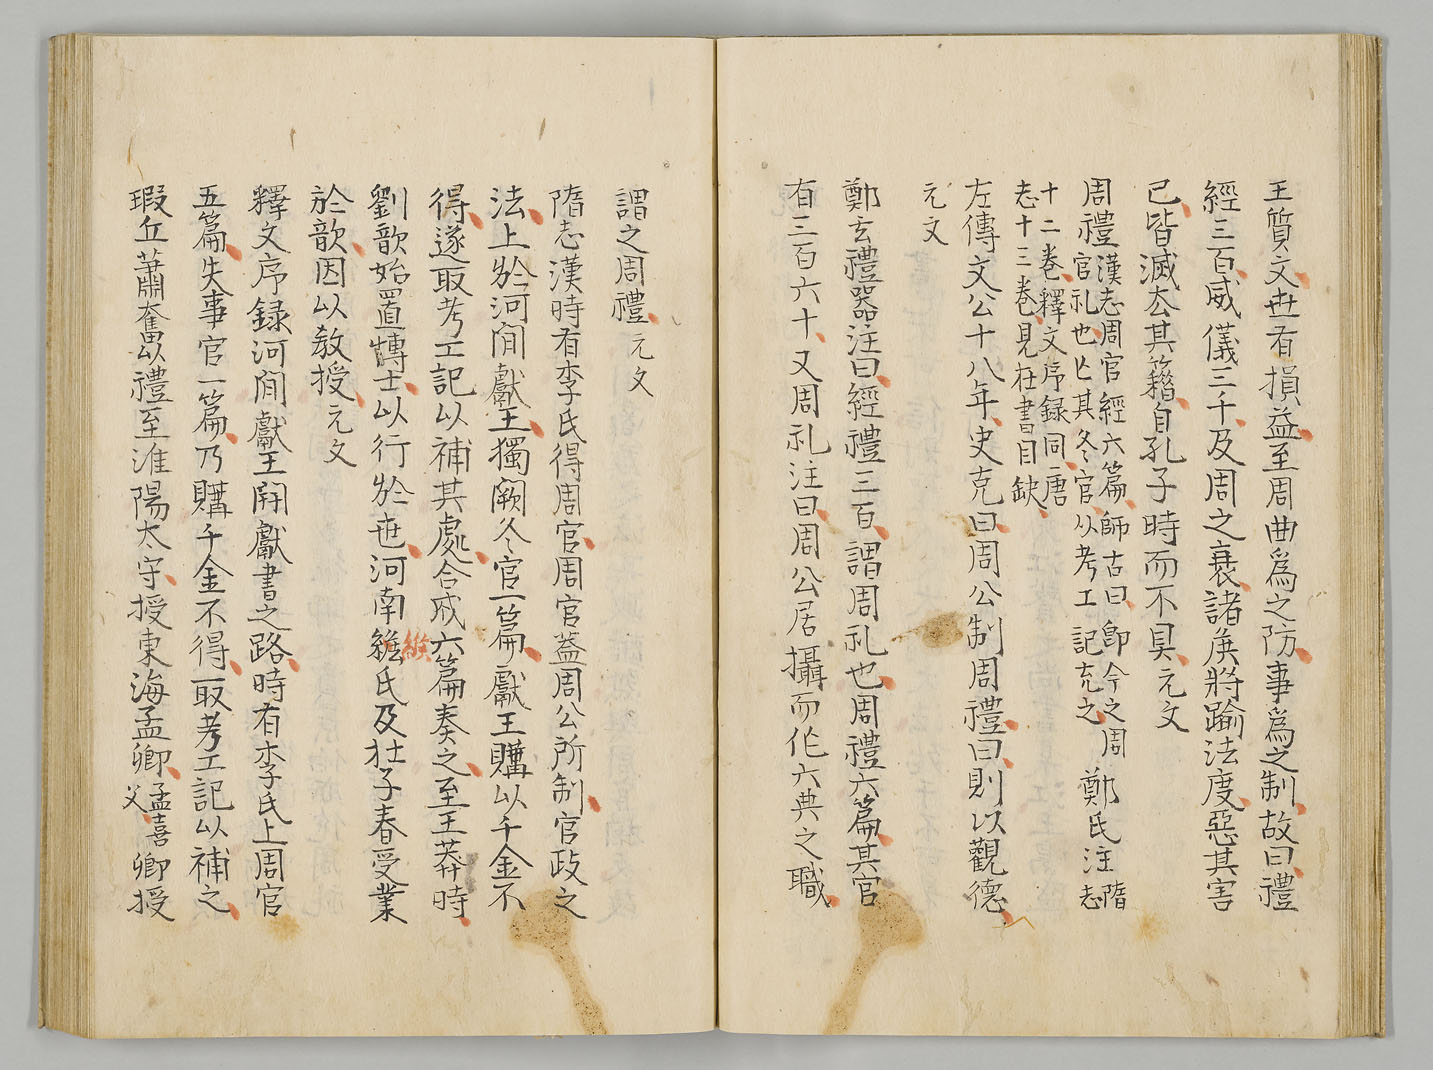 王質文世有損益至周曲為之防事為之制故曰禮
經三百威儀三千及周之衰諸侯將踰法度惡其害
己皆滅去其籍自孔子時而不具元文
周禮漢志周官經六篇師古曰即今之周
官礼也亡其冬官以考工記充之鄭氏注隋志
十二卷釋文序録同唐
志十三卷見在書目缺
元文
左傳文公十八年史克曰周公制周禮曰則以觀德
鄭玄禮器注曰經禮三百謂周礼也周禮六篇其官
有三百六十又周礼注曰周公居攝而作六典之職
謂之周禮元文
隋志漢時有李氏得周官周官蓋周公所制官政之
法上於河間獻王獨闕冬官一篇獻王購以千金不
得遂取考工記以補其處合成六篇奏之至王莽時
劉歆始置博士以行於世河南緱氏及杜子春受業
緱
於歆因以教授元文
釋文序録河間獻王開獻書之路時有李氏上周官
五篇失事官一篇乃購千金不得取考工記以補之
瑕丘蕭奮以禮至淮陽太守授東海孟卿孟喜父卿授